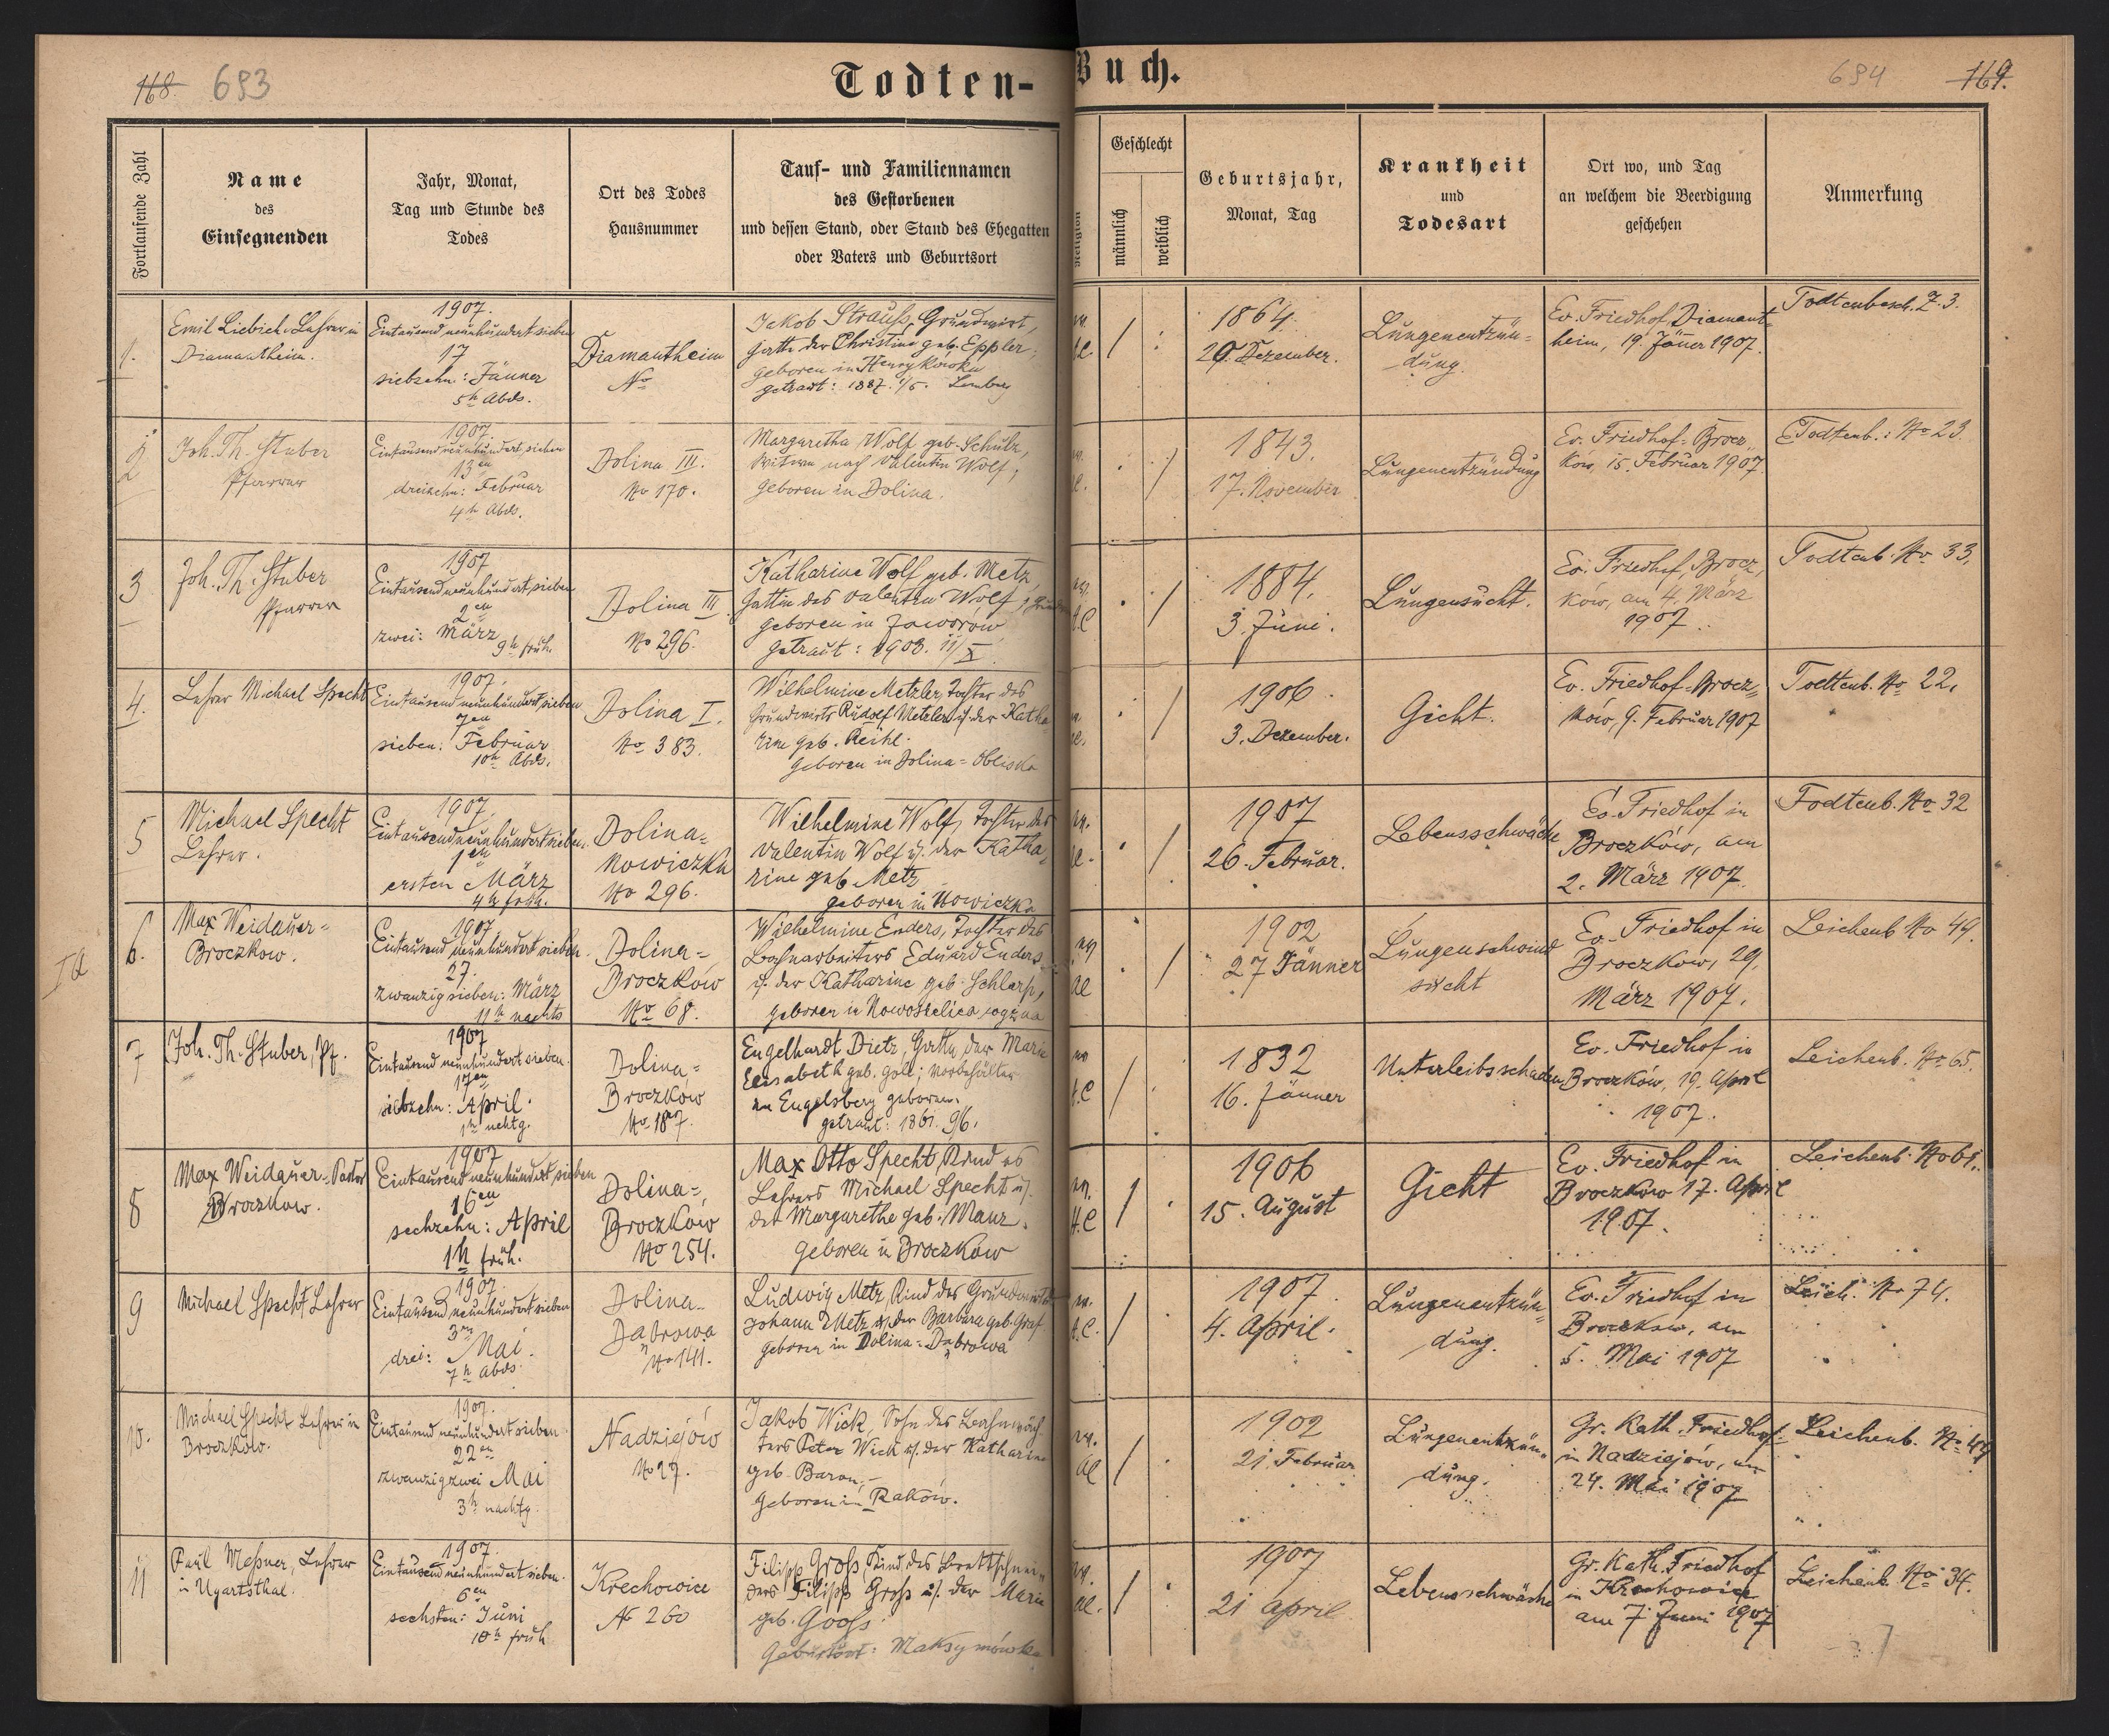 168. 693
Todten-
Buch.
694 169.
Fortlaufende Zahl
Name
des
Einsegnenden
Jahr, Monat,
Tag und Stunde des
Todes
Ort des Todes
Hausnummer
Tauf- und Familiennamen
des Gestorbenen
und dessen Stand, oder Stand des Ehegatten
oder Vaters und Geburtsort
Religion
Geschlecht
männlich
weiblich
Geburtsjahr,
Monat, Tag
Krankheit
und
Todesart
Ort wo, und Tag
an welchem die Beerdigung
geschehen
Anmerkung
1.
Emil Liebich, Lehrer in
Diamantheim.
1907.
Eintausend neunhundert sieben
17
siebzehn: Jänner
5h Abds.
Diamantheim
No
Jakob Strauss, Grundwirt,
Gatte der Christine geb. Eppler;
geboren in Henrykówka
getraut: 1887. Lemberg
1864.
29. Dezember.
Lungenentzün=
dung.
Ev. Friedhof, Diamant=
heim, 19. Jäner 1907.
Todtenbesch. Z. 3.
2
Joh. Th. Stuber
Pfarrer
1907.
Eintausend neunhundert sieben
13en
dreizehn: Februar
4h Abds.
Dolina III.
No 170.
Margaretha Wolf geb. Schulz,
Witwe nach Valentin Wolf;
geboren in Dolina.
1843.
17. November
Lungenentzündung
Ev. Friedhof=Brocz
ków, 15. Februar 1907.
Todtenb.: No 23.
3
Joh. Th. Stuber
Pfarrer
1907
Eintausend neunhundert sieben
2en
zwei: März
9h früh.
Dolina III
No 296.
Katharine Wolf geb. Metz,
Gattin des Valentin Wolf;
geboren in Jaworow
getraut: 1903. 11/X.
1884.
3. Juni.
Lungensucht.
Ev. Friedhof, Brocz,
ków, am 4. März
1907.
Todtenb. No 33.
4.
Lehrer Michael Specht
1907.
Eintausend neunhundert sieben
7en
sieben: Februar
10h Abds.
Dolina I.
No 383.
Wilhelmine Metzler, Tochter des
Grundwirts Rudolf Metzler u. der Katha
rine geb. Reihl.
geboren in Dolina=Obliska
1906.
3. Dezember.
Gicht.
Ev. Friedhof=Brocz=
ków, 9. Februar 1907
Todtenb. No 22.
5
Michael Specht
Lehrer.
1907.
Eintausend neunhundert sieben.
1en
ersten März
4h früh.
Dolina=
Nowiczka
No 296.
Wilhelmine Wolf, Tochter des
Valentin Wolf u. der Katha=
rine geb. Metz
geboren in Nowiczka
1907
26. Februar.
Lebensschwäche
Ev. Friedhof in
Broczków, am
2. März 1907.
Todtenb. No 32
6.
Max Weidauer=
Broczkow.
1907.
Eintausend neunhundert sieben.
27.
zwanzig sieben: März
11h nachts
Dolina=
Broczków
No 68.
Wilhelmine Enders, Tochter des
Bahnarbeiters Eduard Enders
u. der Katharine geb. Schlarp,
geboren in Nowosielica
1902
27 Jänner
Lungenschwind
sucht
Ev. Friedhof in
Broczkow, 29.
März 1907.
Leichenb No 49.
7
Joh. Th. Stuber, Pf.
1907
Eintausend neunhundert sieben.
17en
siebzehn: April.
1h nchtg.
Dolina=
Broczków
No 187.
Engelhardt Dietz, Gatte der Marie
Elisabeth geb. Goll; Vorbehälter
in Engelsberg geboren.
getraut: 1861. 9/6.
1832
16. Jänner
Unterleibsschaden
Ev. Friedhof in
Broczków, 19. April
1907.
Leichenb. No 65.
8
Max Weidauer=Pastor
Broczkow.
1907
Eintausend neunhundert sieben
16en
sechzehn: April
1h früh.
Dolina=
Broczków
No 254.
Max Otto Specht, Kind es
Lehrers Michael Specht u.
der Margarethe geb. Manz.
geboren in Broczków
1906
15. August
Gicht
Ev. Friedhof in
Broczków 17. April
1907.
Leichenb. No 61.
9
Michael Specht Lehrer
1907.
Eintausend neunhundert sieben
3en
drei: Mai.
7h abds.
Dolina=
Dąbrowa
No 141.
Ludwig Metz, Kind des Grundwirts
Johann Metz u. der Barbara geb. Graf
geboren in Dolina=Dąbrowa
1907.
4. April.
Lungenentzün=
dung.
Ev. Friedhof in
Broczków, am
5. Mai 1907
Leich. No 74.
10.
Michael Specht Lehrer in
Broczków.
1907.
Eintausend neunhundert sieben.
22en
zwanzigzwei Mai
3h nachtg.
Nadziejów
No 27.
Jakob Wick, Sohn des Bahnwäch
ters Peter Wick u. der Katharine
geb. Baron.
geboren in Raków.
1902
21 Februar
Lungenentzün=
dung.
Gr. Kath. Friedhof
in Nadziejów, am
24. Mai 1907
Leichenb. No 49
11
Paul Meßner, Lehrer
in Ugartsthal.
1907.
Eintausend neunhundert sieben.
6en
sechsten: Juni
10h früh
Krechowice
No 260
Filipp Groß, Kind des Brettschnei=
ders Filipp Groß u. der Marie
geb. Gooß
Geburtsort: Maksymówka
1907
21 April
Lebensschwäche
Gr. Kath. Friedhof
in Krechowice
am 7 Juni 1907
Leichenb. No 34.
7